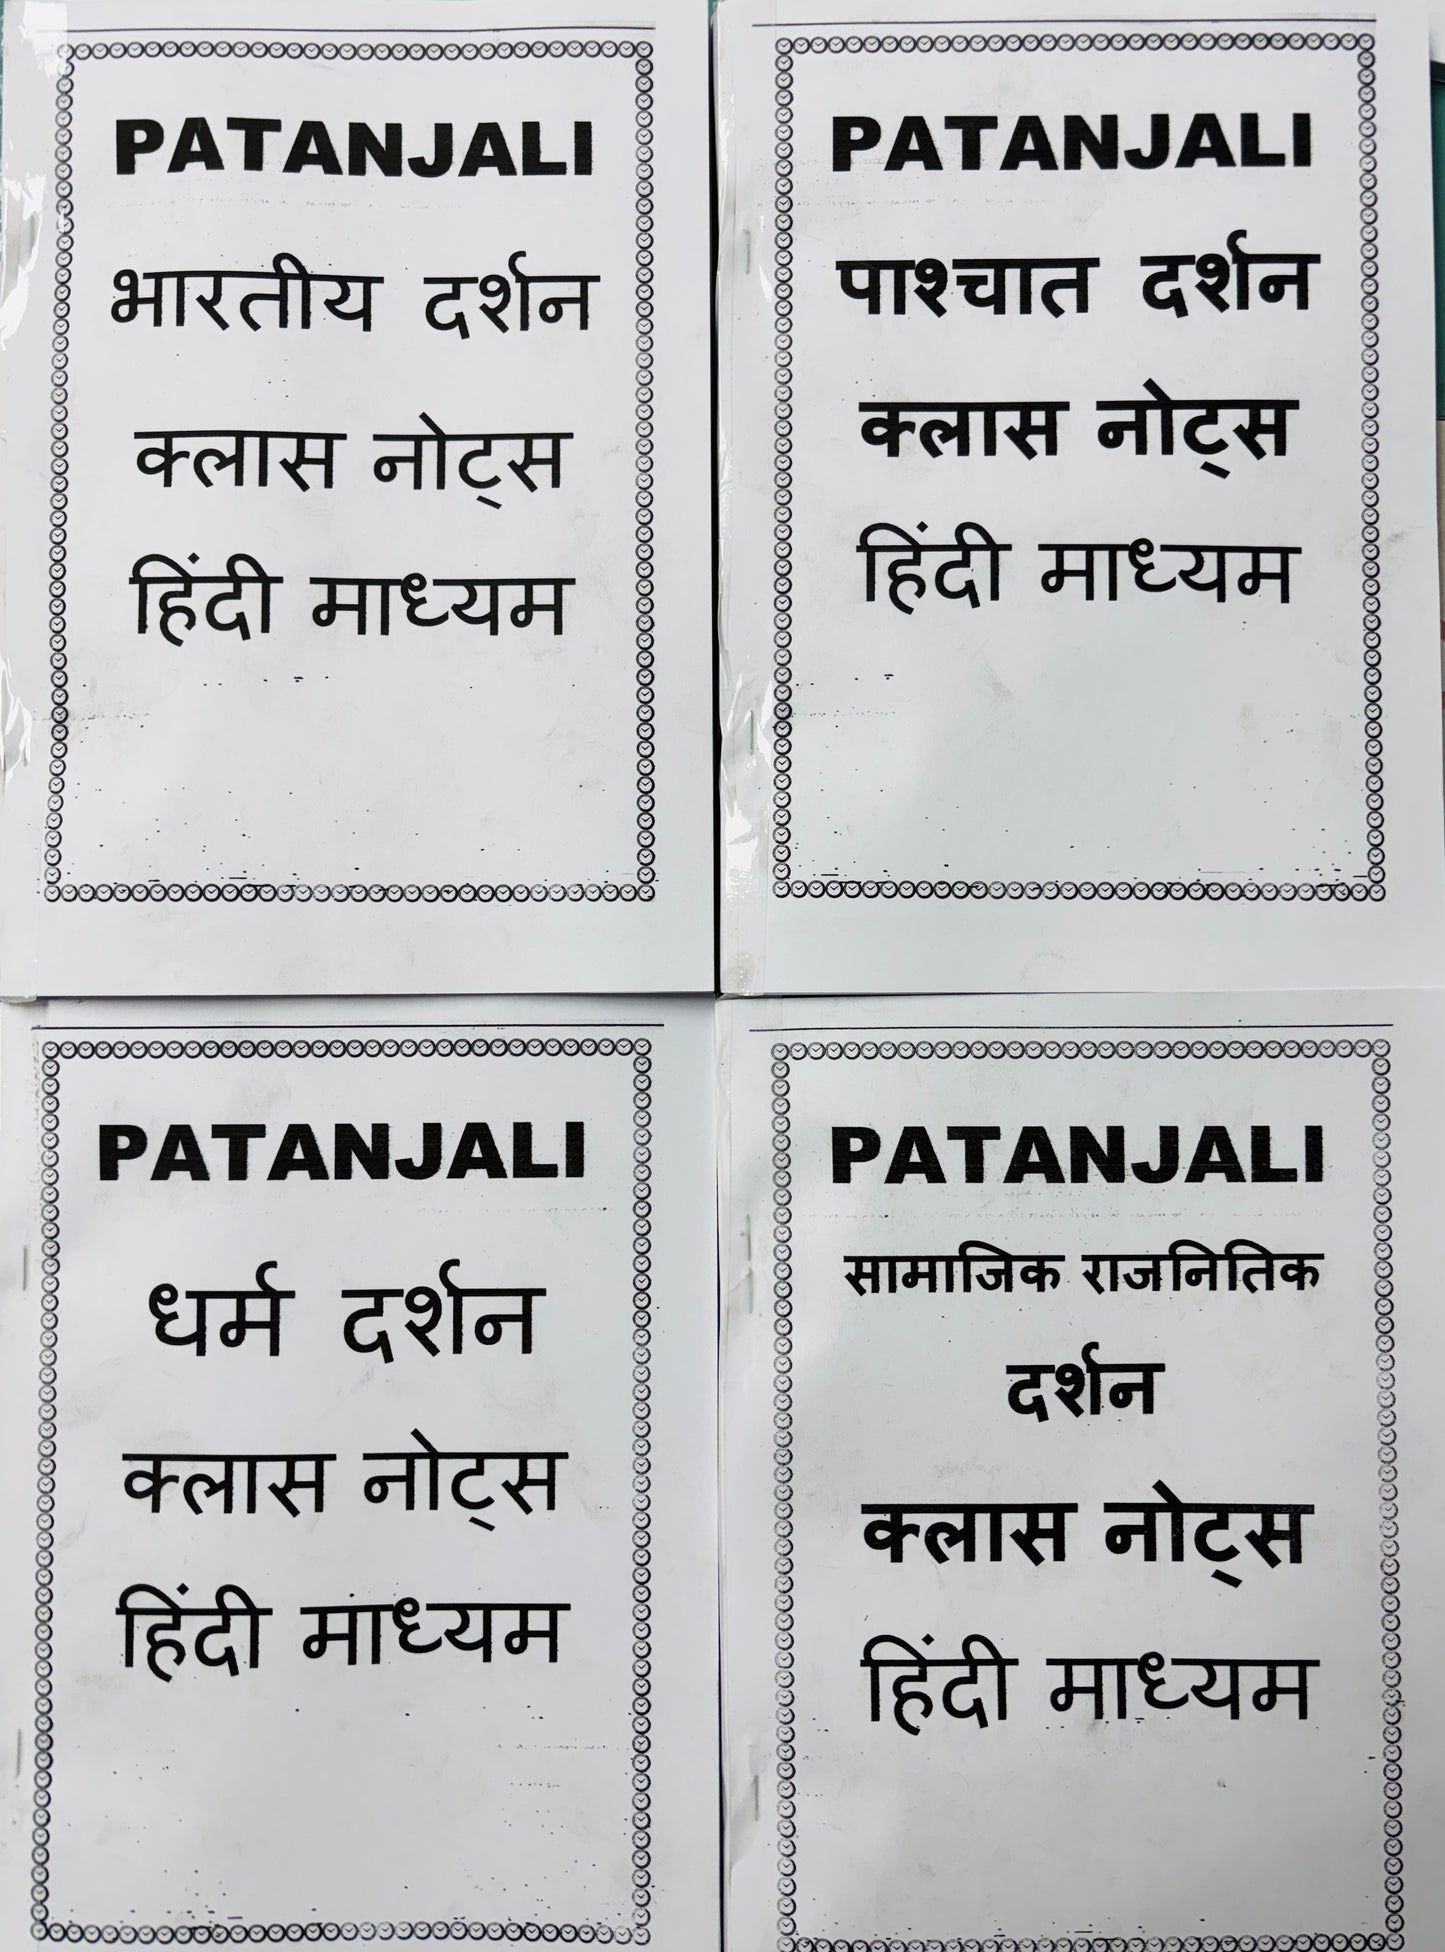 PATANJALI
भारतीय दर्शन
क्लास नोट्स
हिंदी माध्यम
PATANJALI
पाश्चात दर्शन
क्लास नोट्स
हिंदी माध्यम
PATANJALI
धर्म दर्शन
क्लास नोट्स
हिंदी माध्यम
PATANJALI
सामाजिक राजनितिक
दर्शन
क्लास नोट्स
हिंदी माध्यम